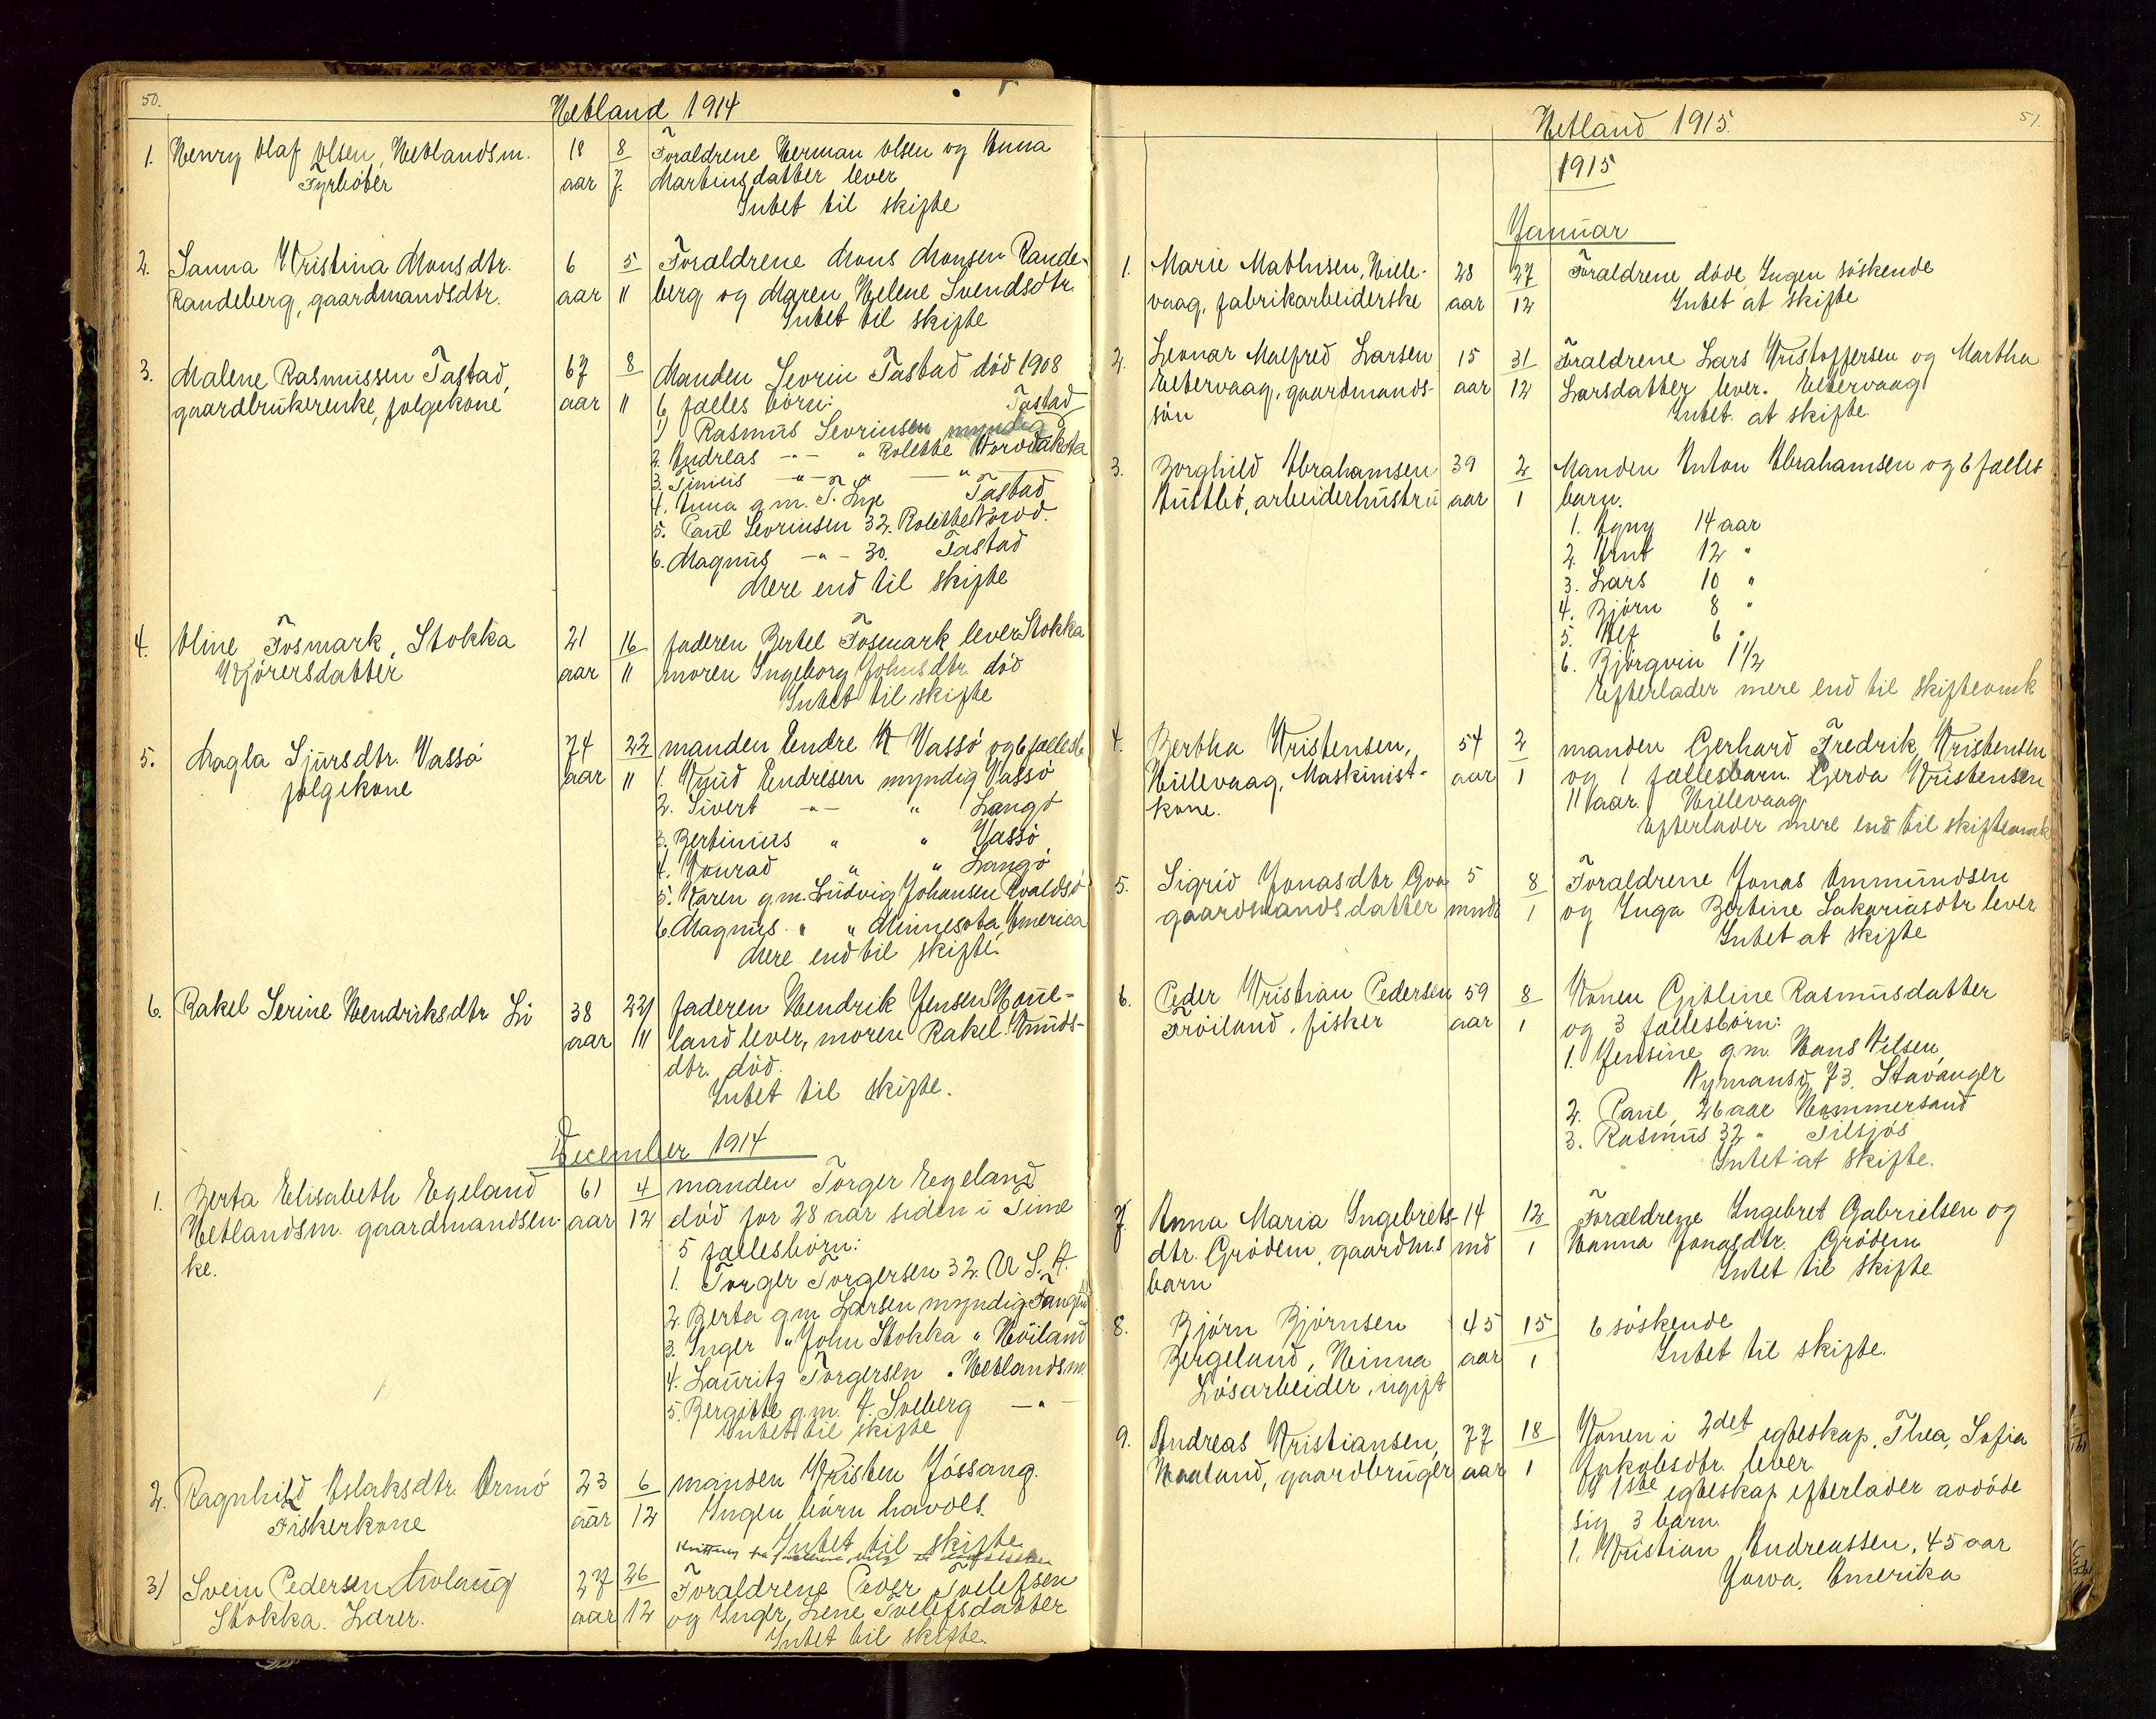 50.
Hetland 1914
1. Henry Olaf Olsen, Hetlandsm. 18 8 Foraldrene Herman Olsen og Anna
Fyrböter aar 7. Martinsdatter lever
Intet til skifte
2. Sanna Kristina Monsdtr. 6 5 Foraldrene Mons Monsen Rande-
Randeberg, gaardmandsdtr. aar 11 berg og Maren Helene Svendsdtr.
Intet til skifte
3. Malene Rasmussen Tastad, 67 8 Manden Sevrin Tastad död 1908
gaardbrukerenke, folgekone aar 11 6 falles börn:
1) Rasmus Sevrinsen myndig Tastad
2. Andreas -"- " Rolette Norddakota
3. Tinius -"- " -"-
4. Anna g.m. T. Lye Tastad
5. Paul Sevrinsen 32. Rolette Nord.
6. Magnus -"- 30. Tastad
Mere end til skifte
4. Oline Fosmark, Stokka 21 16 faderen Bertel Fosmark lever Stokka
Kjörersdatter aar 11 moren Ingeborg Johnsdtr. död
Intet til skifte
5. Magla Sjursdtr. Vassö 74 22 manden Endre K Vassö og 6 fællesb.
folgekone aar 11 1. Knud Endresen myndig Vassö
2. Sivert -"- " Langö
3. Bertinius " " Vassö
4. Konrad " " Langö
5. Karen g.m. Ludvig Johansen Kvaldsö
6. Magnus " " Minnesota, America
Mere end til skifte.
6. Rakel Serine Hendriksdtr Li 38 24 faderen Hendrik Jensen Haue-
aar 11 land lever, moren Rakel Knuds-
dtr. död.
Intet til skifte.
December 1914
1. Berta Elisabeth Egeland 61 4 manden Torger Egeland
Hetlandsm. gaardmandsen- aar 12 död for 28 aar siden i Time
ke. 5 fællesbörn:
1. Torger Torgersen 32. U.S.A.
2. Berta g.m. Larsen myndig
3. Inger " John Stokka " Höiland
4. Lauritz Torgersen " Hetlandsm.
5. Bergitte g.m. A. Soeberg -"-
Intet til skifte
2. Ragnhild Aslaksdtr. Ormö 23 6 manden Kristen Jössang.
Fiskerkone aar 12 Ingen börn havdes.
Intet til skifte
3) Svein Pedersen Molaug 27 26 Foraldrene Peder Tollefsen
Stokka. Lærer. aar 12 og Inger Lene Tollefsdatter
Intet til skifte.
51.
Hetland 1915.
1915
Januar
1. Marie Mathisen, Hille- 28 27 Foraldrene döde, Ingen söskende
vaag, fabrikarbeiderske aar 12 Intet at skifte
2. Leonar Malfred Larsen 15 31 Foraldrene Lars Kristoffersen og Martha
Ottervaag, gaardmands- aar 12 Larsdatter lever. Ottervaag
sön Intet at skifte.
3. Borghild Abrahamsen 39 2 Manden Anton Abrahamsen og 6 falles
Austbö, arbeiderhustru aar 1 barn.
1. Agny 14 aar
2. Arnt 12 "
3. Lars 10 "
4. Björn 8 "
5. Alf 6 "
6. Björgvin 1 1/2
Efterlader mere end til skifteomk
4. Bertha Kristensen, 54 2 manden Gerhard Fredrik Kristensen
Hillevaag, Maskinist- aar 1 og 1 fallesbarn. Gerda Kristensen
kone. 11 aar. Hillevaag.
Efterlader mere end til skifteomk
5. Sigrid Jonasdtr Goa 5 8 Foraldrene Jonas Ommundsen
gaardmandsdatter mndr 1 og Inga Bertine Sakariasdtr lever
Intet at skifte
6. Peder Kristian Pedersen 59 8 Konen Gitline Rasmusdatter
Fröiland, fisker aar 1 og 3 fællesbörn:
1. Jensine g.m. Hans Nilsen,
Nymansg. 73. Stavanger
2. Paul, 26 aar Hommersand
3. Rasmus 32 "
Intet at skifte.
7. Anna Maria Ingebrets- 14 12 Foraldrene Ingebret Gabrielsen og
dtr. Grödem, gaardm.s md 1 Hanna Jonasdtr. Grödem
barn Intet til skifte
8. Björn Björnsen 45 15 6 söskende
Bergeland, Hinna aar 1 Intet til skifte.
Lösarbeider, ugift
9. Andreas Kristiansen, 77 18 Konen i 2det egteskap, Thea, Sofia
Haaland, gaardbruger aar 1 Jakobsdtr. lever.
Af 1ste egteskap efterlader avdöde
sig 3 barn.
1. Kristian Andreassen, 45 aar
Jowa, Amerika